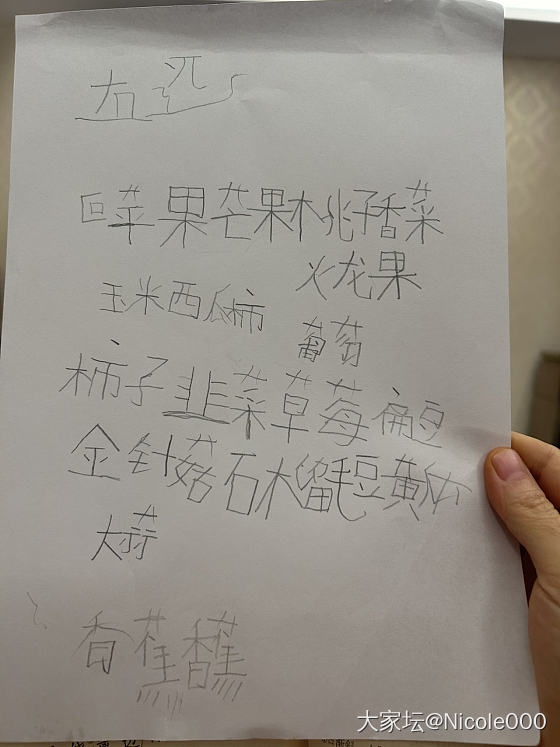 苹果芒果桃子香菜
火龙果
玉米西瓜柿
葡萄
柿子韭菜草莓扁豆
金针菇石榴毛豆黄瓜
大蒜
香蕉香蕉
大家坛@Nicole000